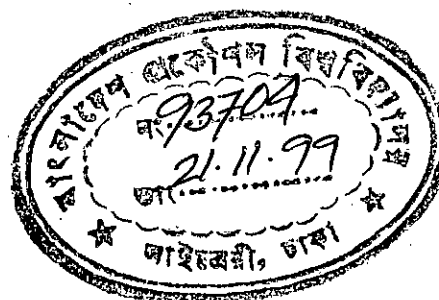 বাংলাদেশ প্রকৌশল বিশ্ববিদ্যালয়
নং 93704
তাং 21.11.99
লাইব্রেরী, ঢাকা